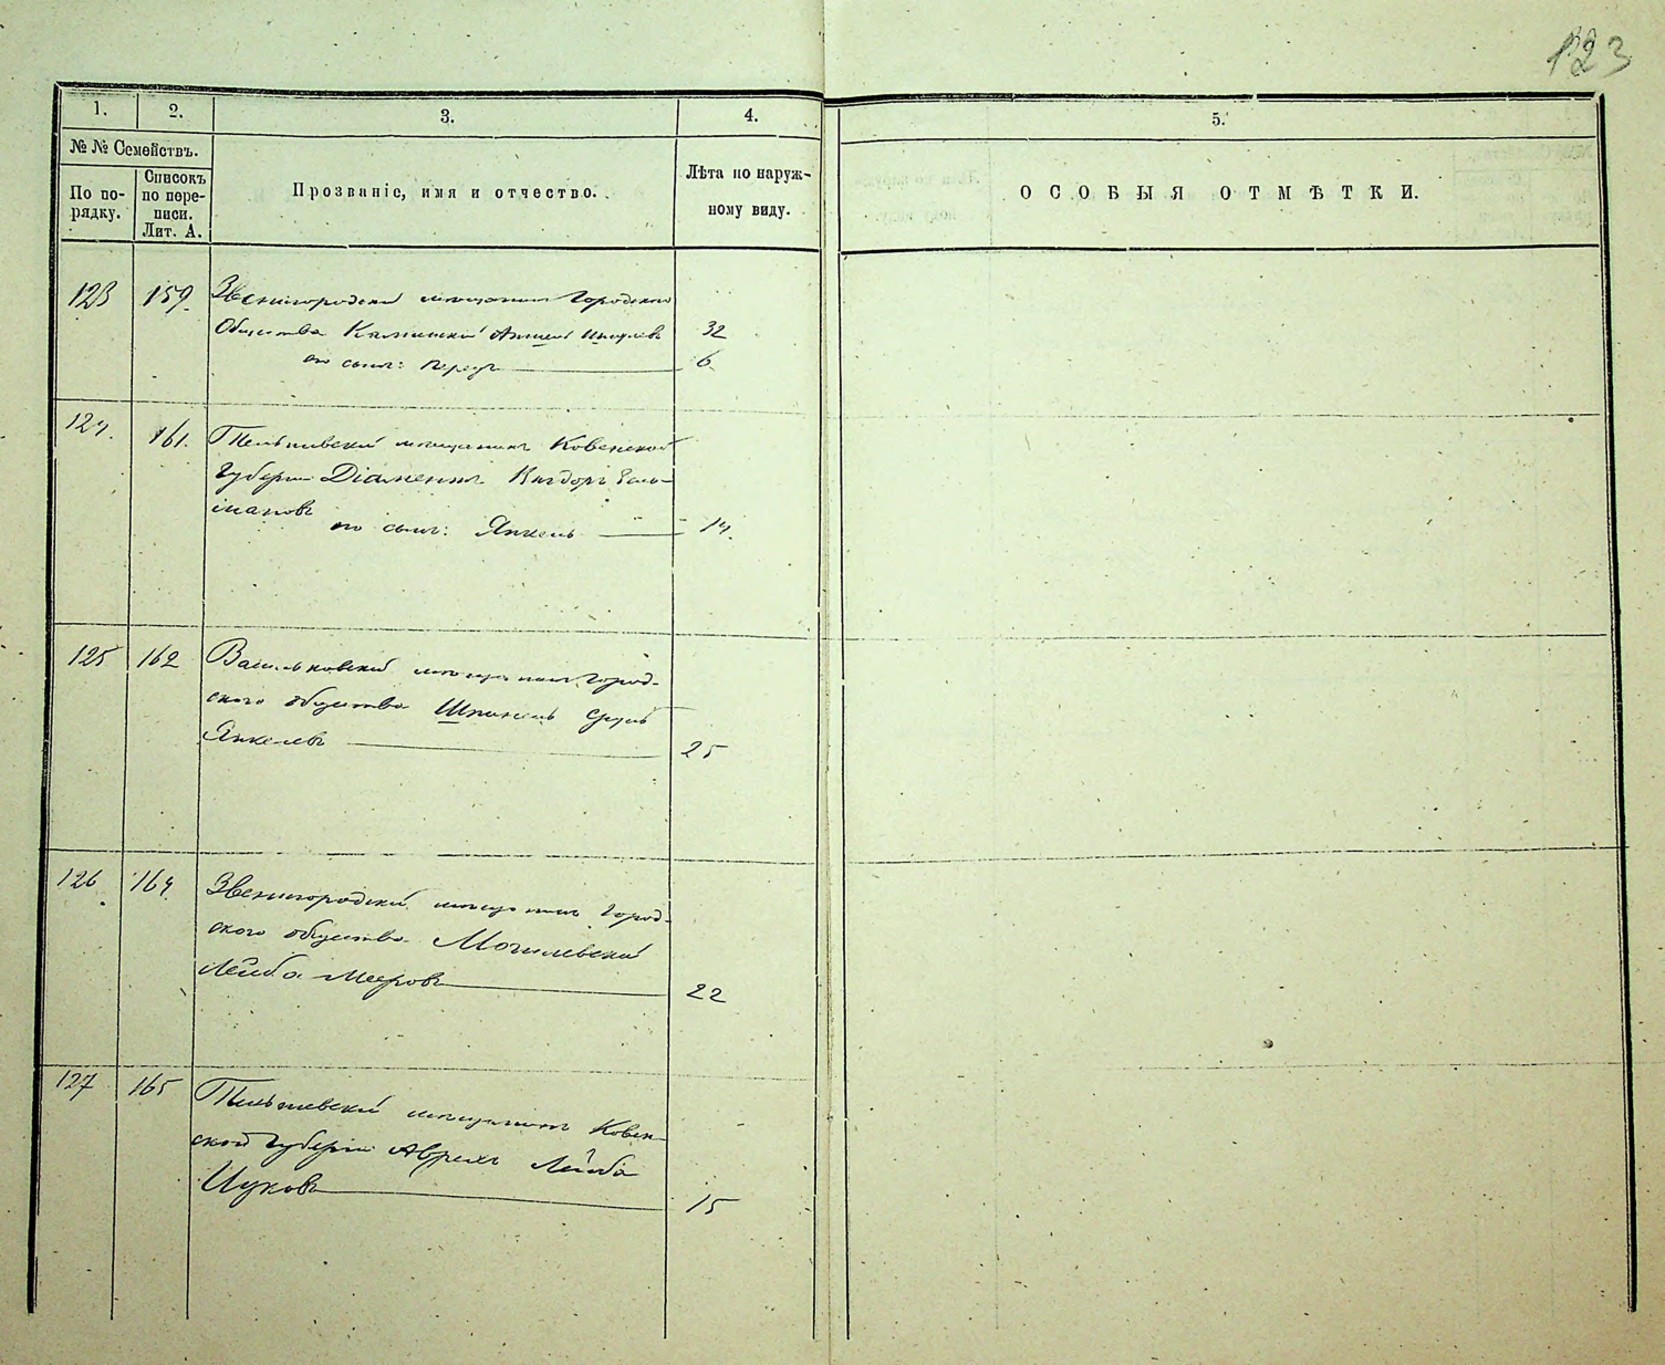 123
1. 2. 3. 4. 5.
№ № Семействъ.
По порядку.
Списокъ по переписи. Лит. А.
Прозваніе, имя и отчество.
Лѣта по наружному виду.
ОСОБЫЯ ОТМѢТКИ.
123 159. Звенигородскій мѣщанинъ Городского
Общества Каминскій 32
его сынъ: 6
124. 161. Тельшевскій мѣщанинъ Ковенской
Губерніи Діаментъ Вигдоръ Зель-
мановъ
его сынъ: Янкель 14.
125 162 Васильковскій мѣщанинъ Город-
ского общества Сруль
Янкелевъ 25
126 164. Звенигородскій мѣщанинъ Город-
ского общества Могилевскій
Лейба Мееровъ 22
127 165 Тельшевскій мѣщанинъ Ковен-
ской Губерніи Лейба
Ицковъ 15